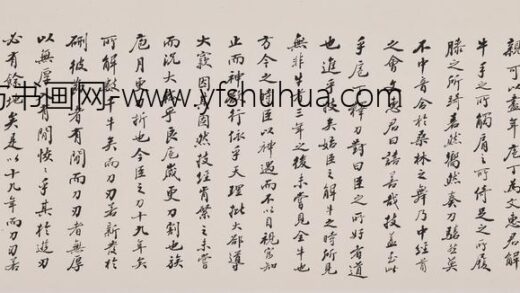 親可以盡年庖丁為文惠君解
牛手之所觸肩之所倚足之所履
膝之所踦砉然嚮然奏刀騞然莫
不中音合於桑林之舞乃中經首
之會文惠君曰譆善哉技蓋至此
乎庖丁釋刀對曰臣之所好者道
也進乎技矣始臣之解牛之時所見
無非牛者三年之後未嘗見全牛也
方今之時臣以神遇而不以目視官知
止而神行依乎天理批大郤導
大窾因其固然技經肯綮之未嘗
而況大軱乎良庖歲更刀割也族
庖月更刀折也今臣之刀十九年矣
所解數千牛矣而刀刃若新發於
硎彼節者有閒而刀刃者無厚
以無厚入有閒恢恢乎其於遊刃
必有餘地矣是以十九年而刀刃若
书画网-www.yfshuhua.com